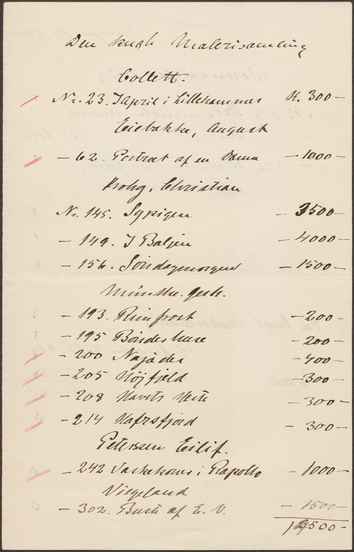 Den norske Malerisamling
Collett.
No. 23. I April i Lillehammer K. 300 —
Eiebakke, August
— 62. Portræt af en Dame — 1000 —
Krohg, Christian
No. 145. Sypigen — 3500 —
— 149. I Baljen — 4000 —
— 156. Søndagmorgen — 1500 —
Munthe. Gerh.
— 193. Rimfrost — 200 —
— 195 Bondestue — 200 —
— 200 Najader — 400 —
— 205 Højfjeld — 300 —
— 208 Havets Heste — 300 —
— 214 Hafrsfjord — 300 —
Petersen Eilif.
— 242 i Rapallo — 1000 —
Vigeland
— 302. Buste af E. V. — 1500 —
14500 —